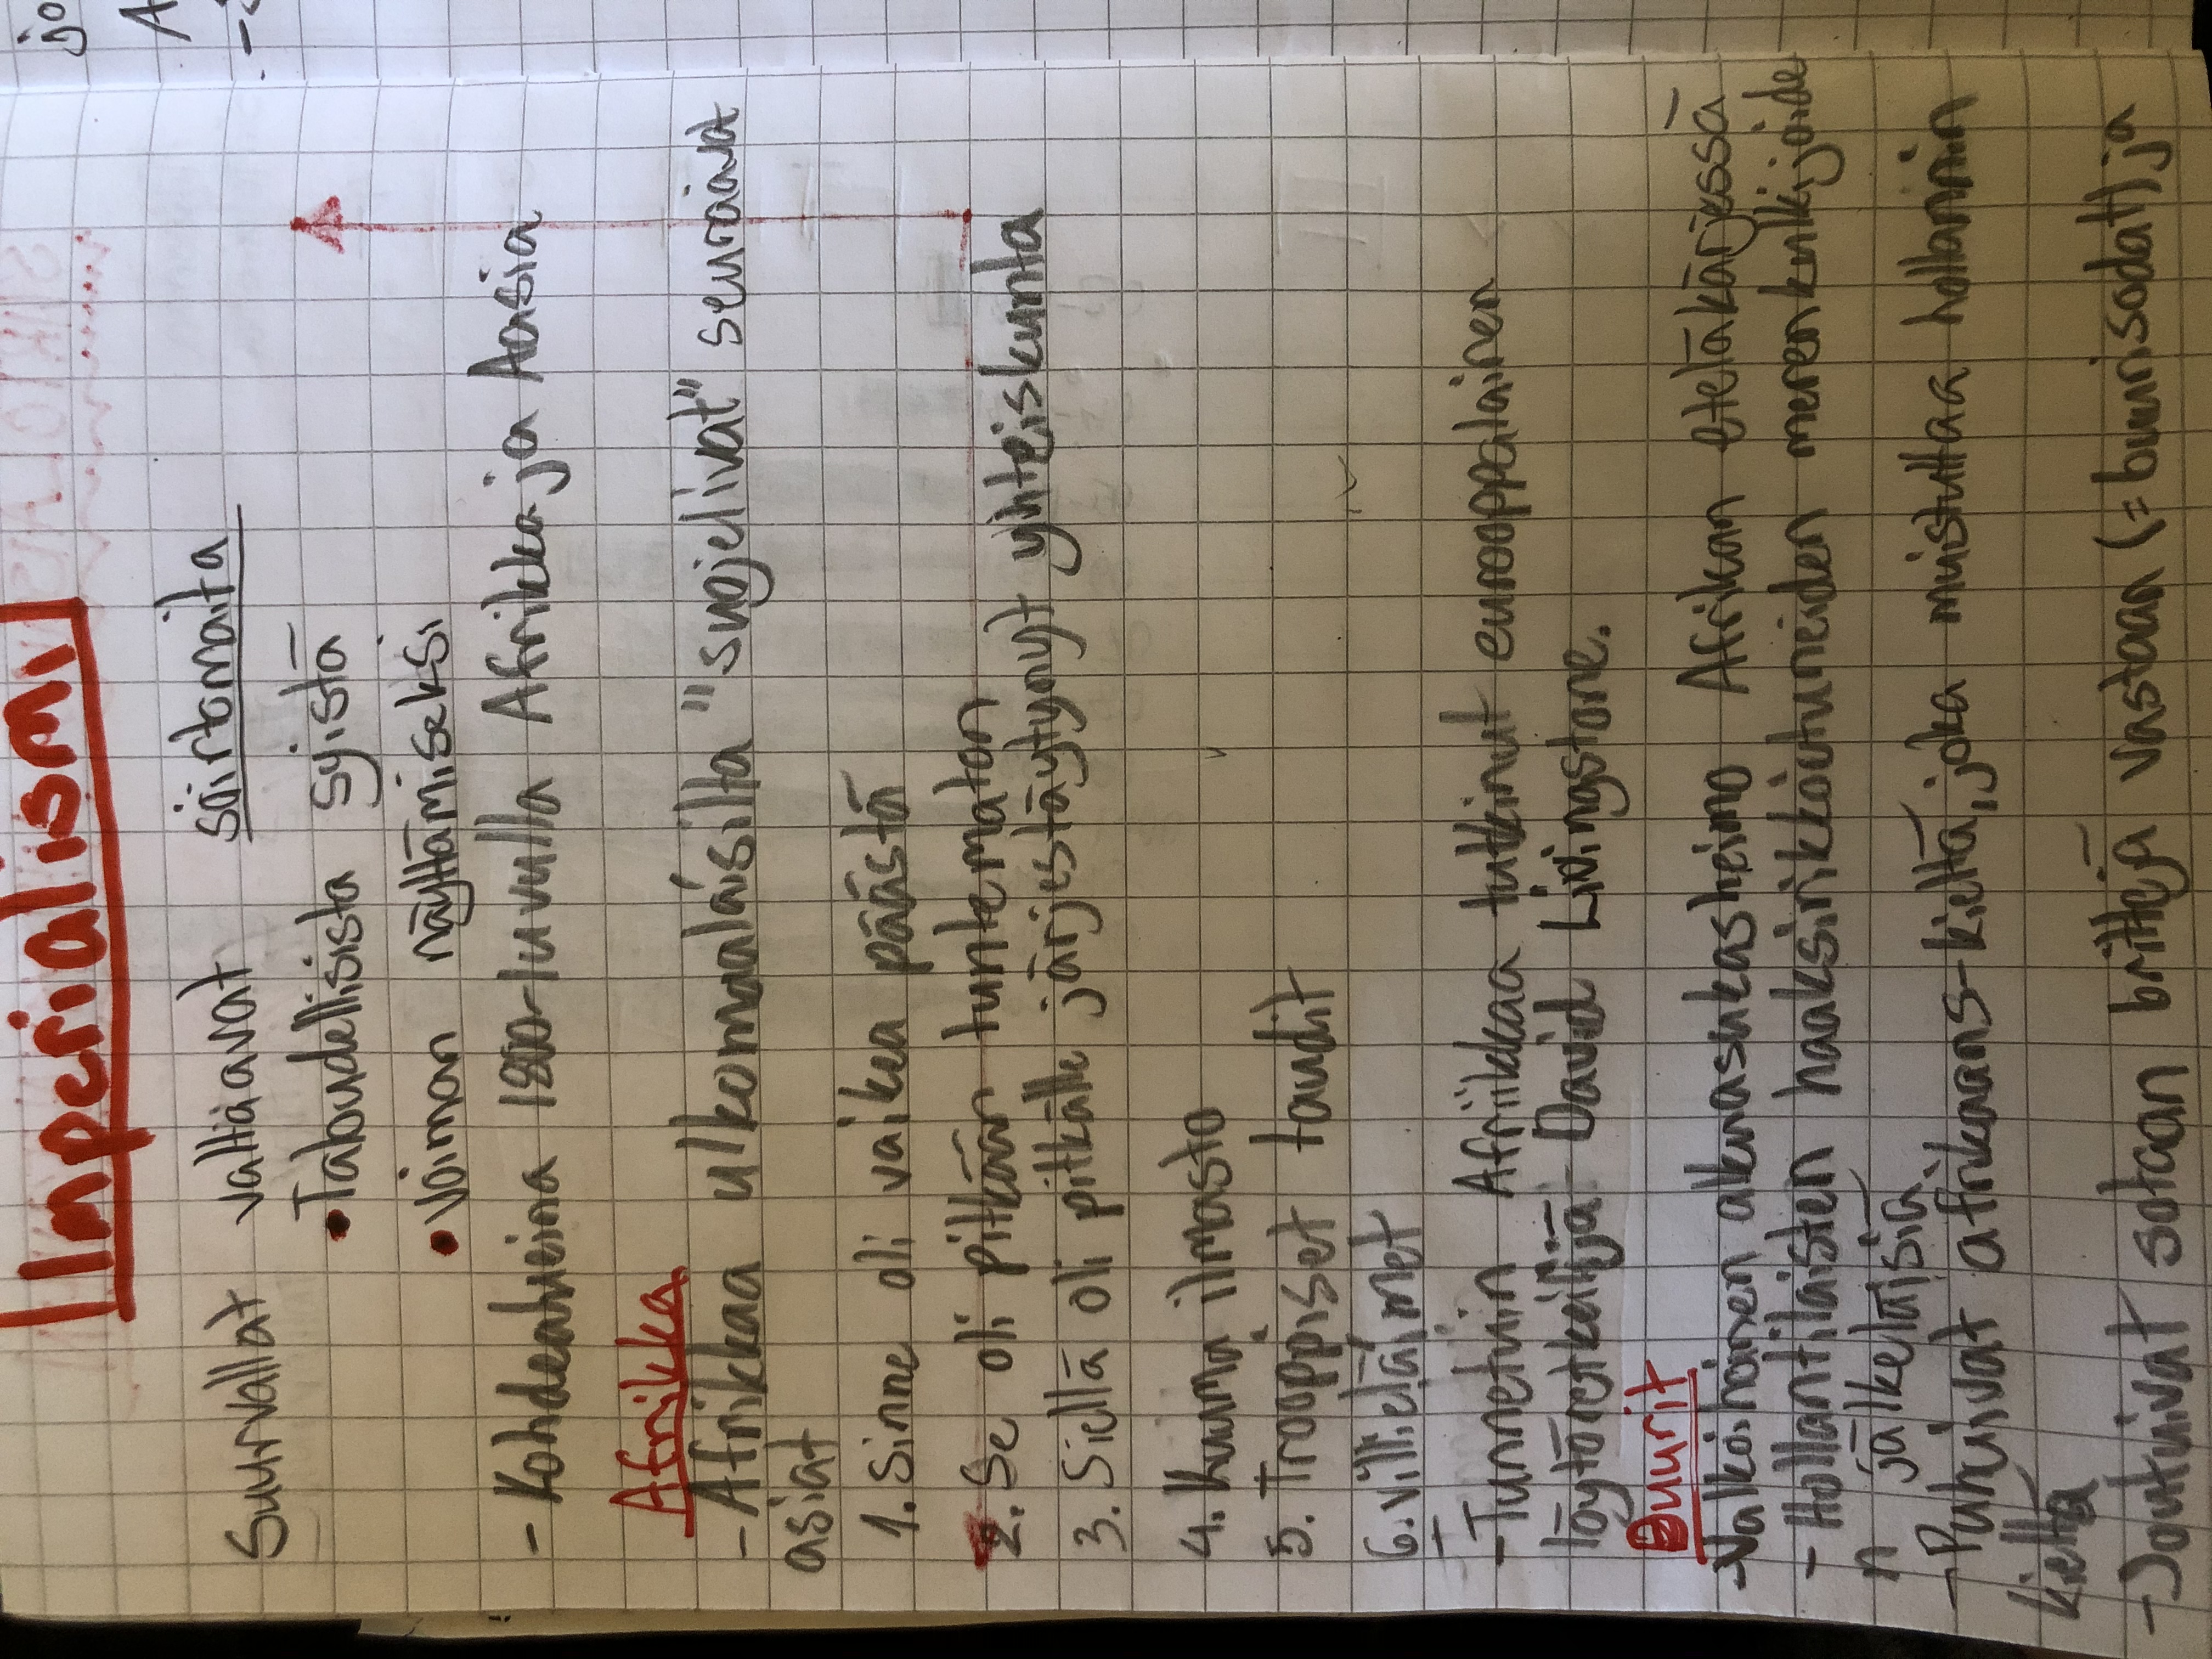 Imperialismi
Suurvallat valtiaavat siirtomaita
• Taloudellisista syistä
• voiman näyttämiseksi
- Kohdealueina 1800-luvulla Afrikka ja Aasia
Afrikka
- Afrikkaa ulkomaaläisiltä "suojelivat" seuraavat
asiat
1. Sinne oli vaikea päästä
2. Se oli pitkään tuntematon
3. Siellä oli pitkälle järjestäytynyt yhteiskunta
4. Kuuma ilmasto
5. Trooppiset taudit
6. villieläimet
- Tunnetuin Afriikkaa tutkinut eurooppalainen
löytöretkeilijä David Livingstone.
Buurit
- Valkoihoinen alkuasukasheimo Afrikan eteläkärjessä
- Hollantilaisten haaksirikkoutuneiden merenkulkijoide
n jälkeläisiä
- Puhuivat afrikaans-kieltä, joka muistuttaa hollannin
kieltä
- Joutuivat sotaan brittejä vastaan (= buurisodat) ja
jo
A